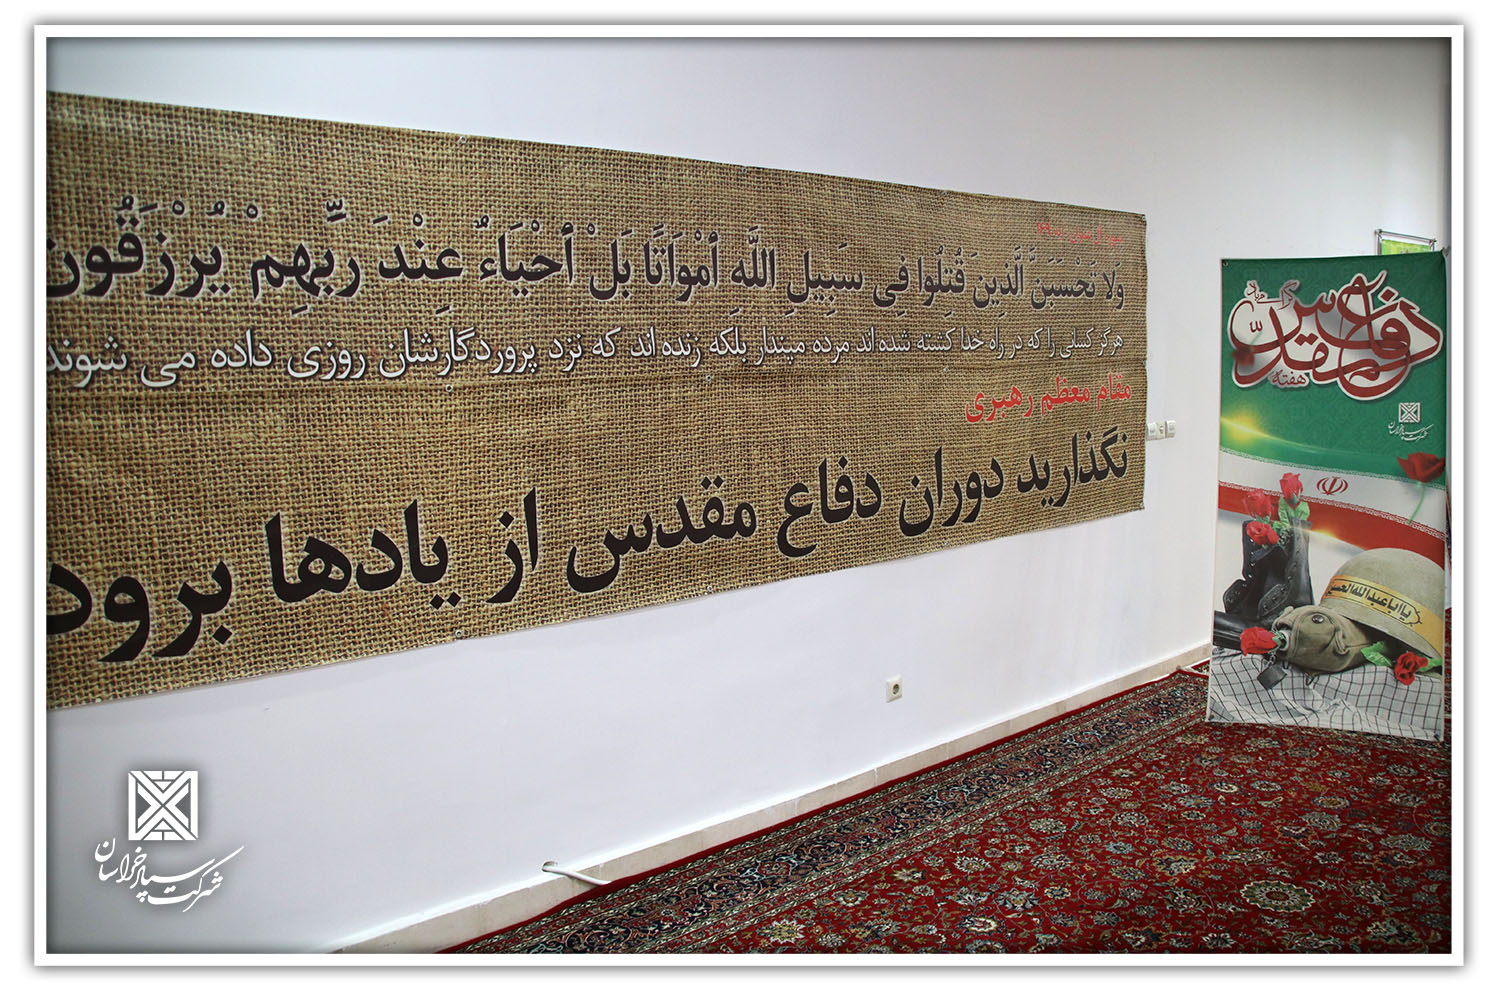 وَلا تَحْسَبَنَّ الَّذِينَ قُتِلُوا فِي سَبِيلِ اللَّهِ أَمْوَاتًا بَلْ أَحْيَاءٌ عِنْدَ رَبِّهِمْ يُرْزَقُون
هرگز کسانی را که در راه خدا کشته شده اند مرده مپندار بلکه زنده اند که نزد پروردگارشان روزی داده می شوند
مقام معظم رهبری
نگذارید دوران دفاع مقدس از یادها برود
هفته دفاع مقدس گرامی باد
شرکت سپاد خراسان
یا اباعبدالله الحسین
شرکت سپاد خراسان